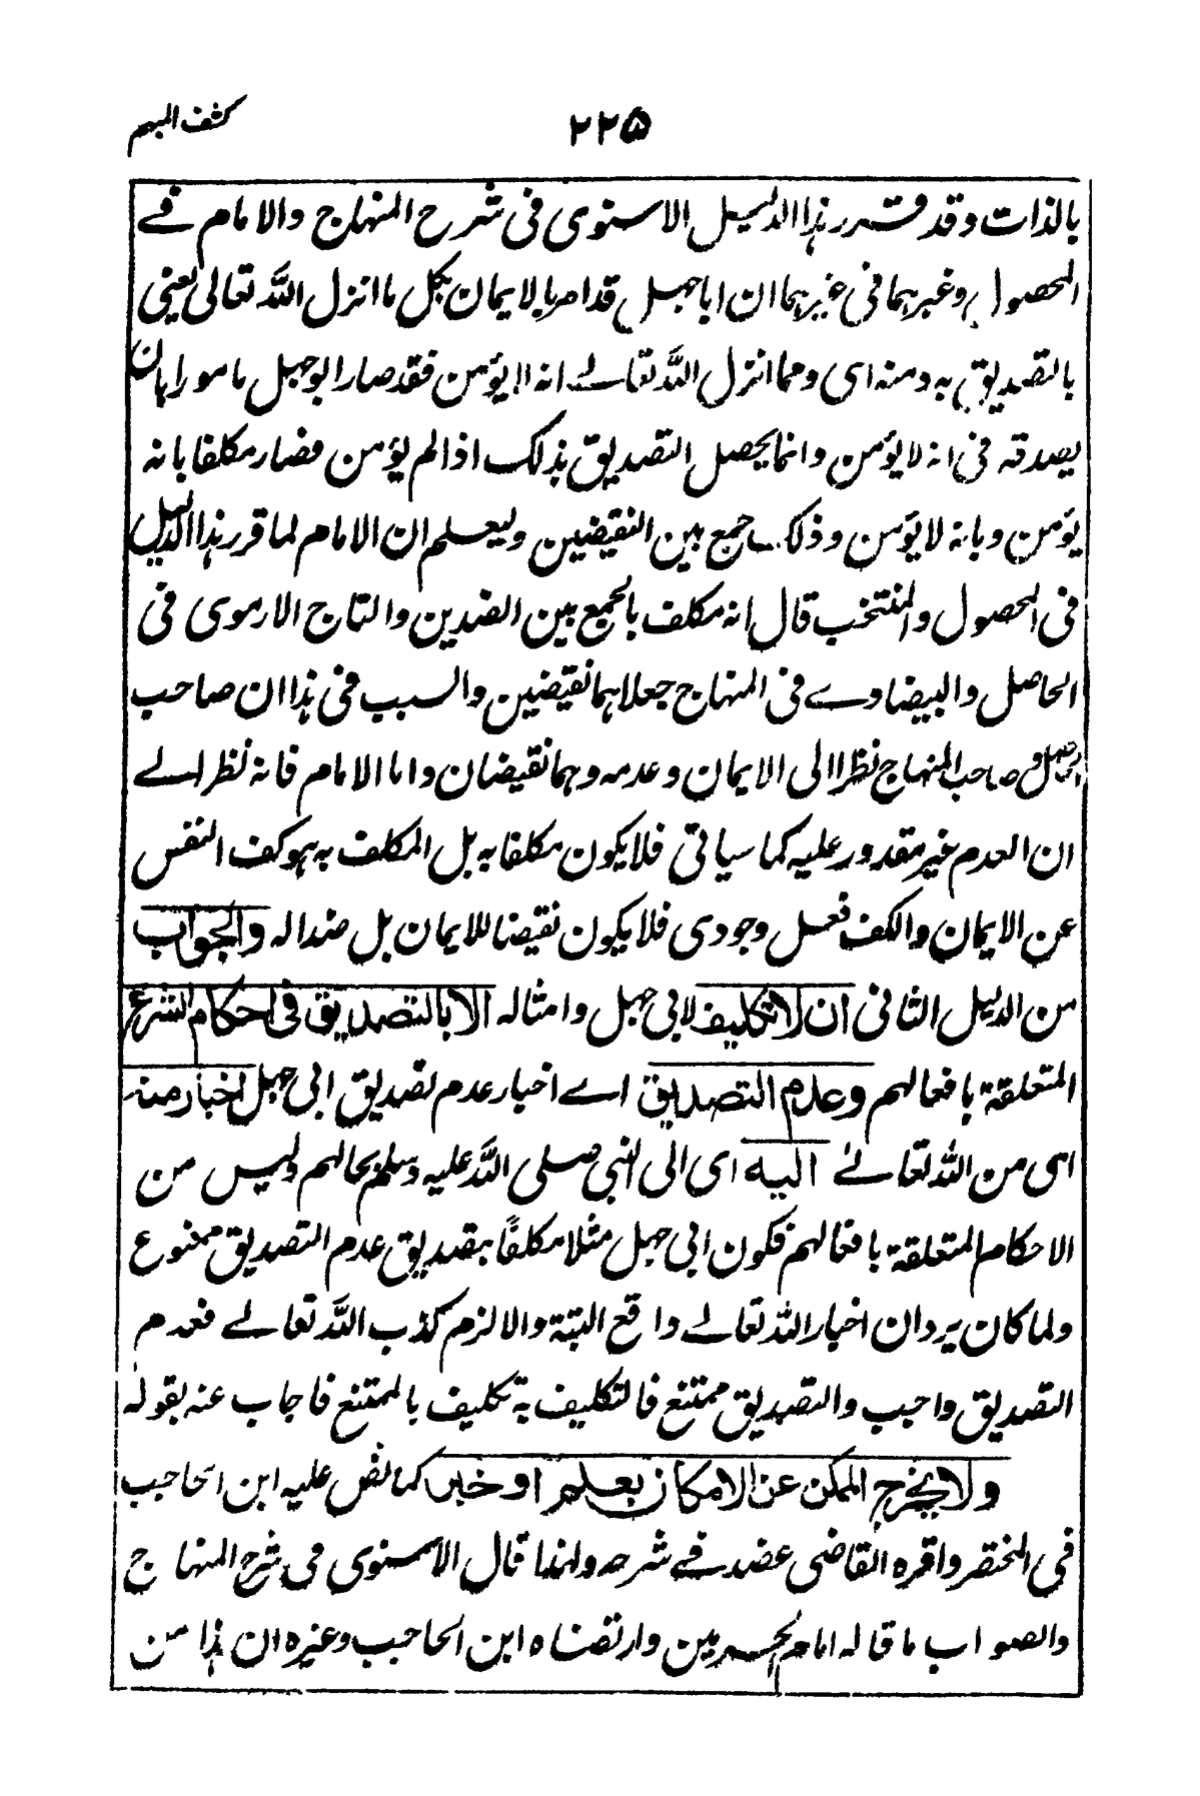 كشف المبهم
٢٢۵
بالذات وقد قرر هذا الدليل الاسنوى فى شرح المنهاج والامام فے
المحصول وغيرهما فى غيرهما ان ابا جهل قد امر بالايمان بكل ما انزل اللّٰه تعالى يعنى
بالتصديق به ومنه اى ومما انزل اللّٰه تعالے انه لا يؤمن فقد صار ابو جهل مامورا بان
يصدقه فى انه لا يؤمن وانما يحصل التصديق بذلك اذا لم يؤمن فصار مكلفا بانه
يؤمن وبانه لا يؤمن وذلك جمع بين النقيضين وليعلم ان الامام لما قرر هذا الدليل
فى المحصول والمنتخب قال انه مكلف بالجمع بين الضدين والتاج الارموى فى
الحاصل والبيضاوے فى المنهاج جعلاهما نقيضين والسبب فى هذا ان صاحب
الحاصل وصاحب المنهاج نظرا الى الايمان وعدمه وهما نقيضان واما الامام فانه نظر الے
ان العدم غير مقدور عليه كما سياتى فلا يكون مكلفا به بل المكلف به هو كف النفس
عن الايمان والكف فعل وجودى فلا يكون نقيضا للايمان بل ضدا له والجواب
من الدليل الثانى ان لا تكليف لابى جهل وامثاله الا بالتصديق فى احكام الشرع
المتعلقة بافعالهم وعدم التصديق اے اخبار عدم تصديق ابى جهل اخبار منه
اى من اللّٰه تعالےٰ اليه اى الى النبى صلى اللّٰه عليه وسلم بحالهم وليس من
الاحكام المتعلقة بافعالهم فكون ابى جهل مثلا مكلفًا بتصديق عدم التصديق ممنوع
ولما كان يرد ان اخبار اللّٰه تعالے واقع البتة والا لزم كذب اللّٰه تعالے فعدم
التصديق واجب والتصديق ممتنع فالتكليف به تكليف بالممتنع فاجاب عنه بقوله
ولا يخرج الممكن عن الامكان بعلم او خبر كما نص عليه ابن الحاجب
فى المختصر واقره القاضى عضد فے شرحه ولهذا قال الاسنوى فى شرح المنهاج
والصواب ما قاله امام الحرمين وارتضاه ابن الحاجب وغيره ان هذا من